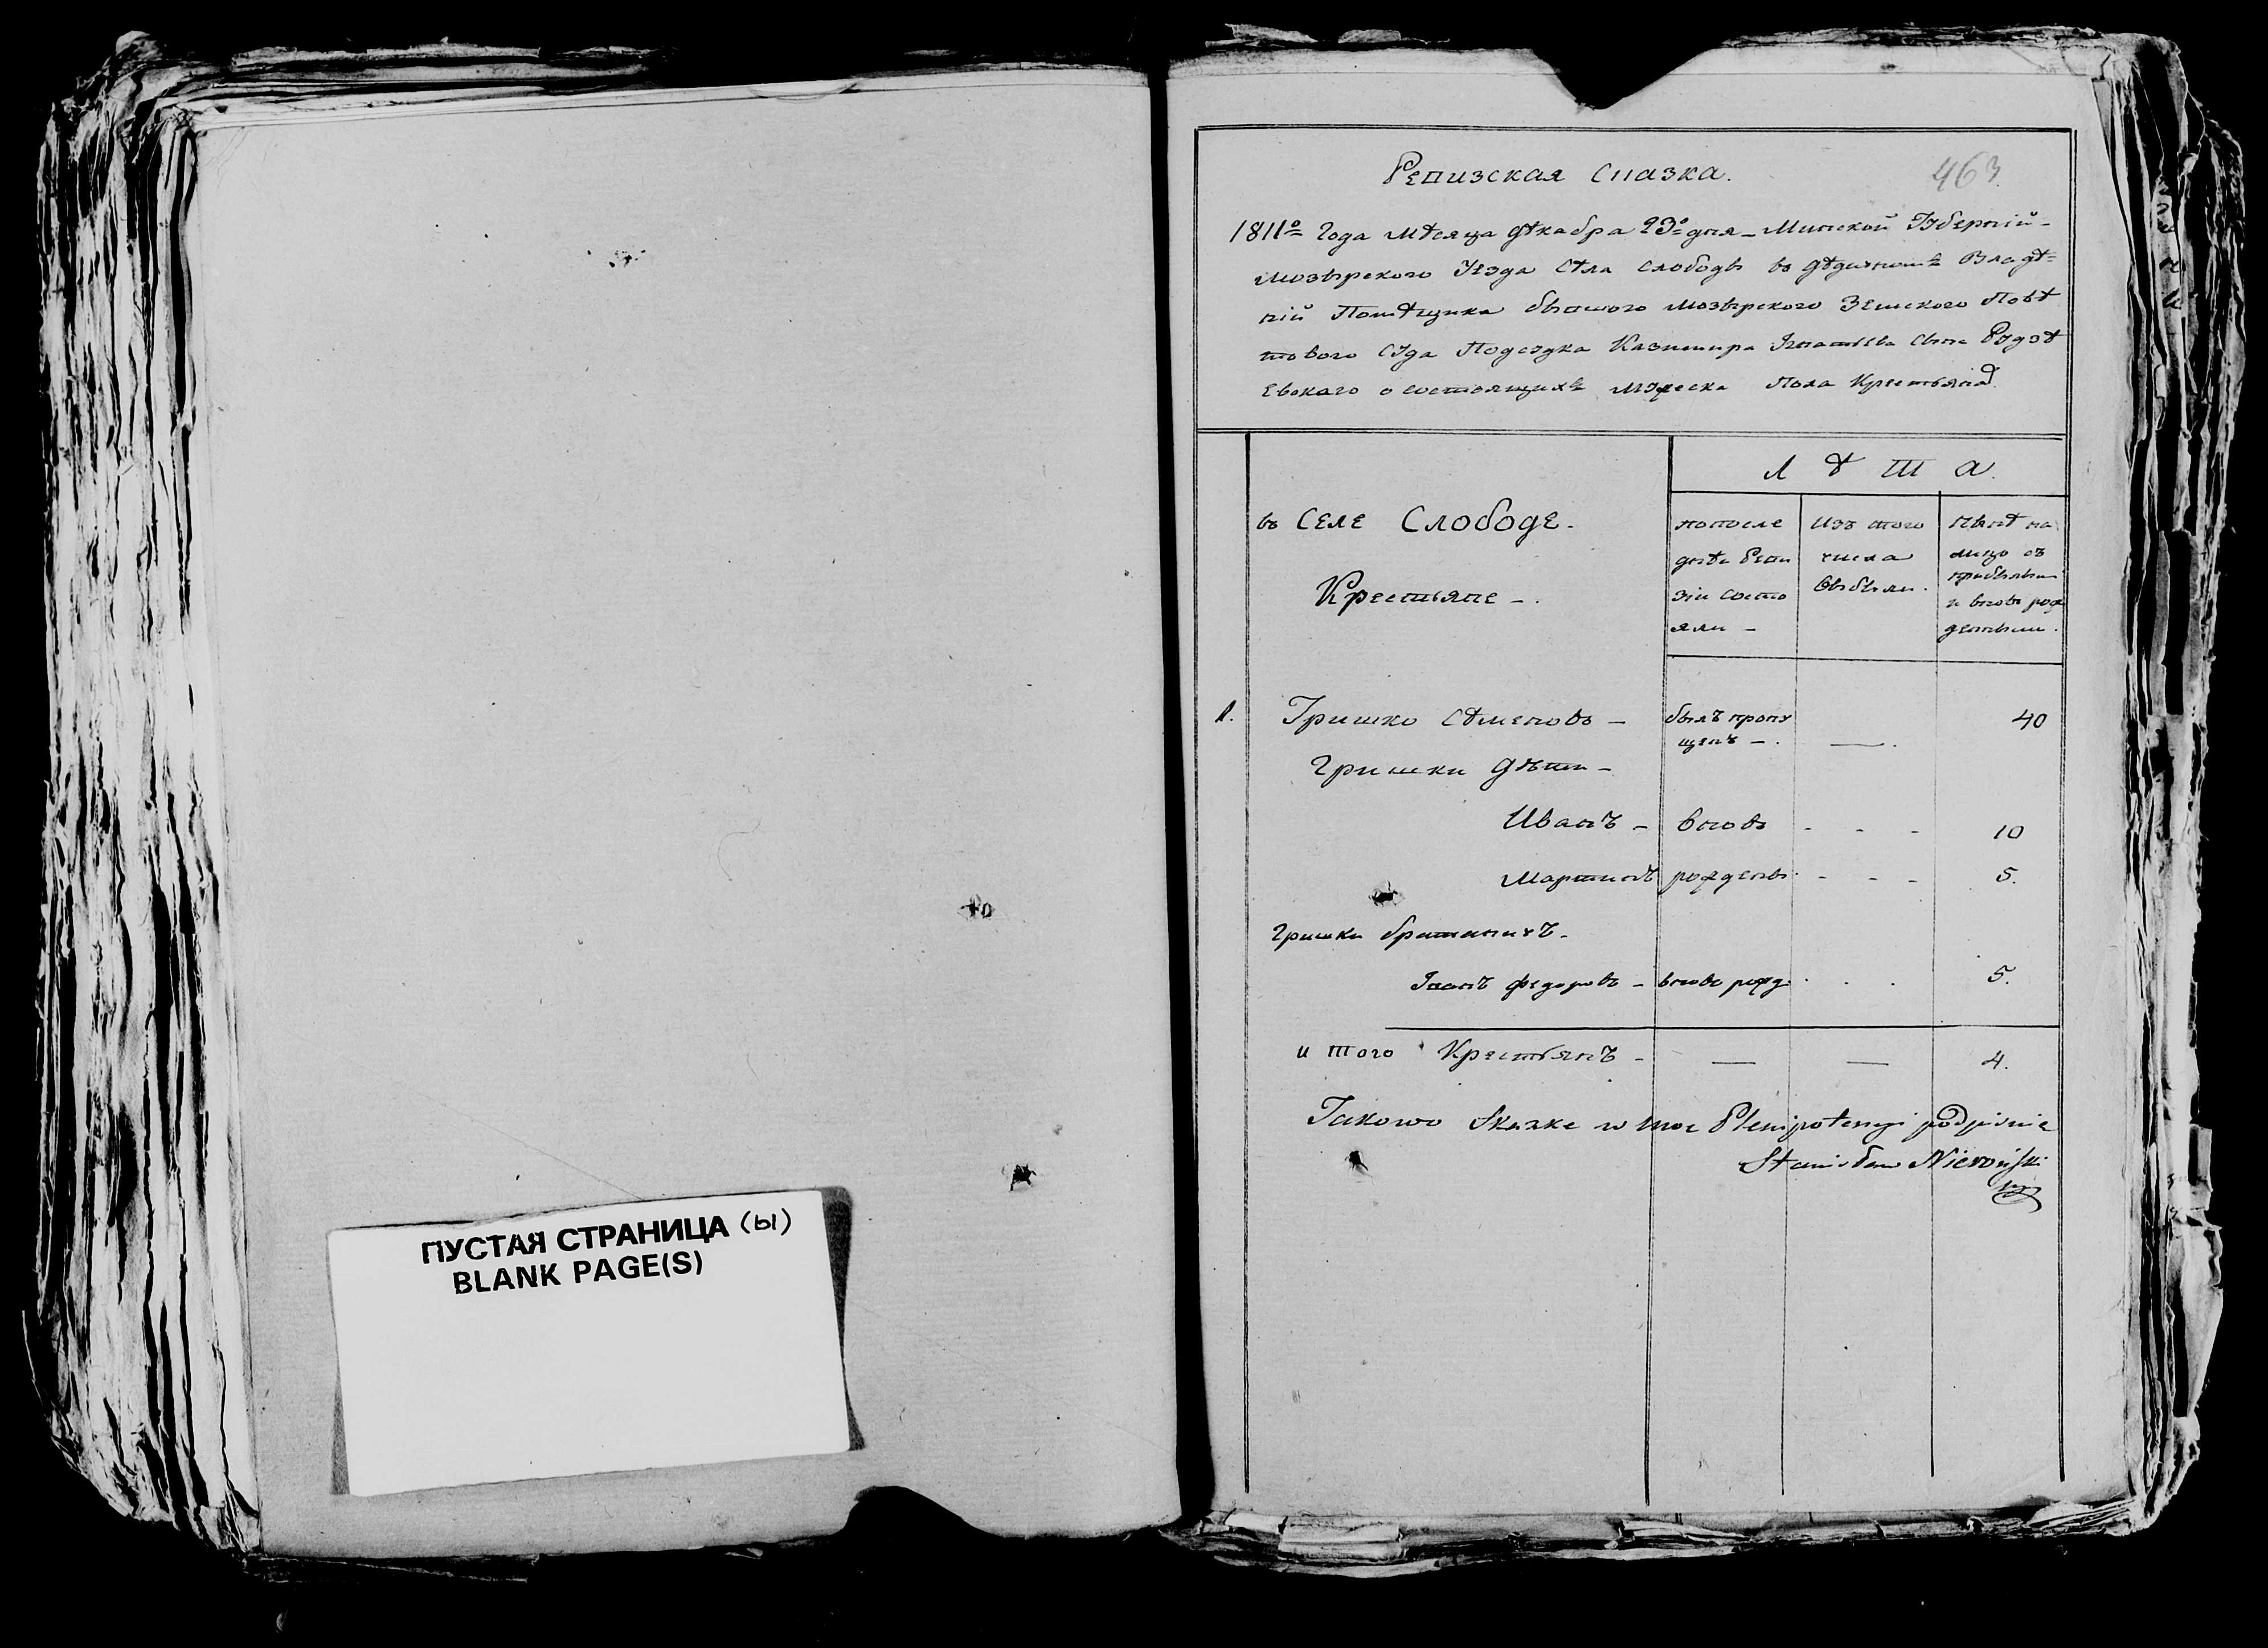 ПУСТАЯ СТРАНИЦА (ы)
BLANK PAGE(S)
463
Ревизская Сказка.
1811º Года мѣсяца дѣкабра 23º дня – Минской Губерніи –
мозырского Уезда Сѣла слободы въ Владѣ=
ніи Помѣщика бывшого мозырского Земского Повѣ
тового Суда Подсудка Казимира Игнатьева сына
о состоящихъ мужеска пола крестьянъ.
Л ѣ т а.
въ СЕЛЕ Слободе.
Крестьяне –.
по после
дней Реви
зіи состо
яли –
Изъ того
числа
выбыли.
Нынѣ на
лицо съ
прибылыми
и вновь рож
денными.
1. Гришко Сѣменовъ – былъ пропу 40
щенъ –. —.
Гришки дѣти –
Иванъ – вновь - - - 10
Мартинъ рождены - - - 5.
Гришки братаничъ –
федоровъ – вновь рожд . . . 5.
и того Крестьянъ – — — 4.
Takowo Skazke w moc Plenipotencyi podpisuie
Stanisław